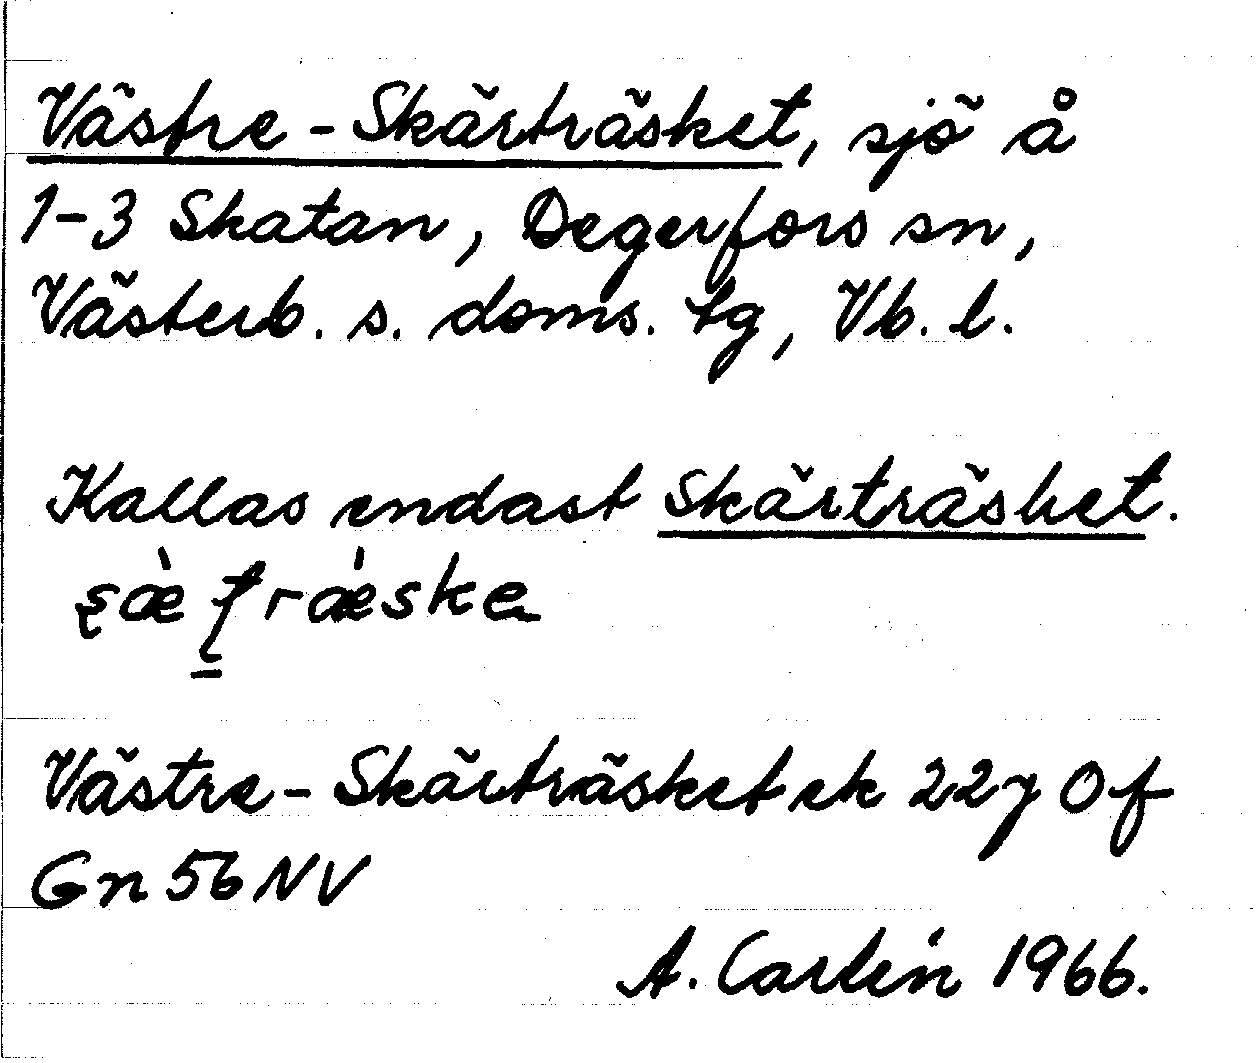 Västre-Skärträsket, sjö å
1-3 Skatan, Degerfors sn,
Västerb. s. doms. tg, Vb. l.
Kallas endast Skärträsket.
Västre-Skärträsket ek 22y Of
Gn 56 NV
A. Carlén 1966.